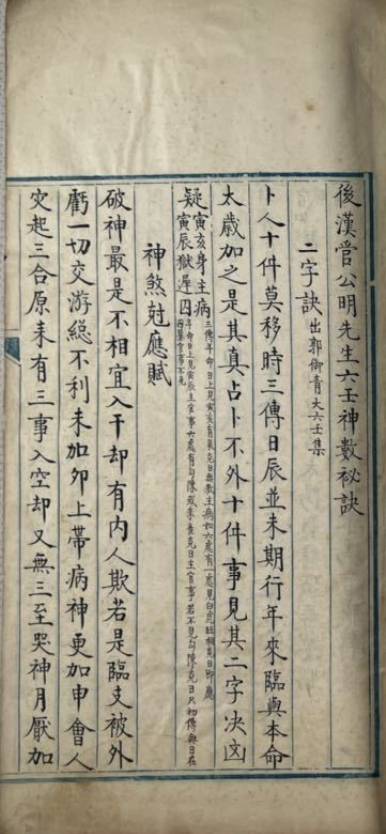 後漢管公明先生六壬神數祕訣
二字訣 出郭御青大六壬集
卜人十件莫移時三傳日辰並未期行年來臨與本命
太歲加之是其真占卜不外十件事見其二字决凶
疑寅亥身主病
寅辰獄遲囚
神煞尅應賦
破神最是不相宜入干却有内人欺若是臨支被外
虧一切交游總不利未加卯上帶病神更加申會人
灾起三合原来有三事入空却又無三至哭神月厭加